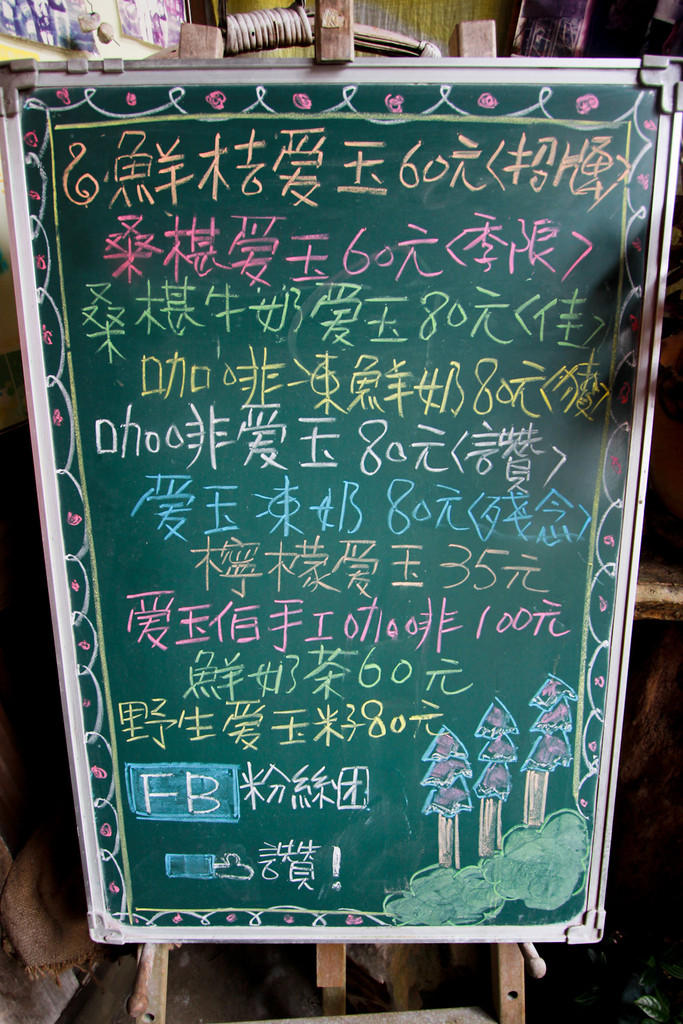 鮮桔爱玉60元<招牌>
桑椹爱玉60元<季限>
桑椹牛奶爱玉80元<佳>
咖啡凍鮮奶80元<讚>
咖啡爱玉80元<讚>
爱玉凍奶80元<殘念>
檸檬爱玉35元
爱玉佰手工咖啡100元
鮮奶茶60元
野生爱玉籽80元
FB粉絲团
讚!